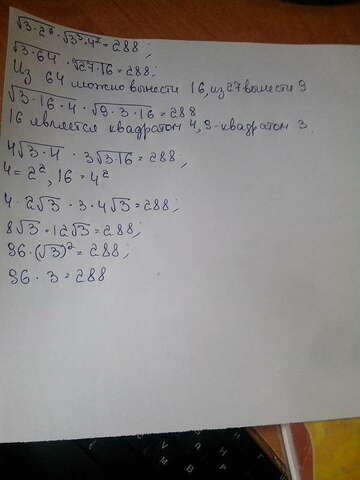 √3·2⁶ · √3³·4² = 288;
√3·64 · √27·16 = 288;
Из 64 можно вынести 16, из 27 вынести 9
√3·16·4 · √9·3·16 = 288
16 является квадратом 4, 9-квадратом 3.
4√3·4 · 3√3·16 = 288;
4 = 2², 16 = 4²
4·2√3 · 3·4√3 = 288;
8√3 · 12√3 = 288;
96·(√3)² = 288;
96 · 3 = 288